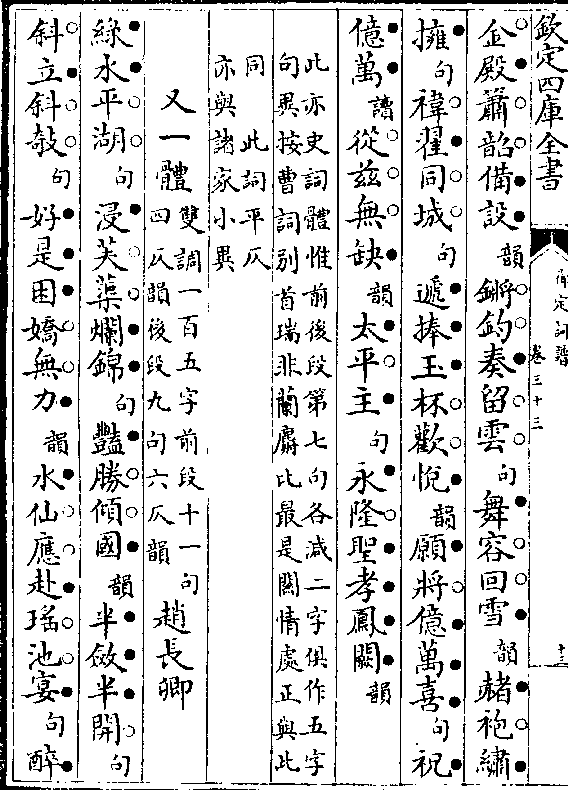 欽定四庫全書
御定詞譜
卷三十三
十三
企殿簫韶備設韻鏘鈞奏留雲句舞容回雪韻赭袍繡
擁句禕翟同城句遞捧玉杯歡悅韻願將億萬喜句祝
億萬讀從兹無缺韻太平主句永隆聖孝鳳闕韻
此亦史詞體惟前後段第七句各减二字俱作五字
句異按曹詞别首瑞非蘭麝比最是關情處正與此
同 此詞平仄
亦與諸家小異
又一體雙調一百五字前段十一句
四仄韻後段九句六仄韻趙長卿
綠水平湖句浸芙蕖爛錦句豔勝傾國韻半斂半開句
斜立斜欹句好是困嬌無力韻水仙應赴瑶池宴句醉